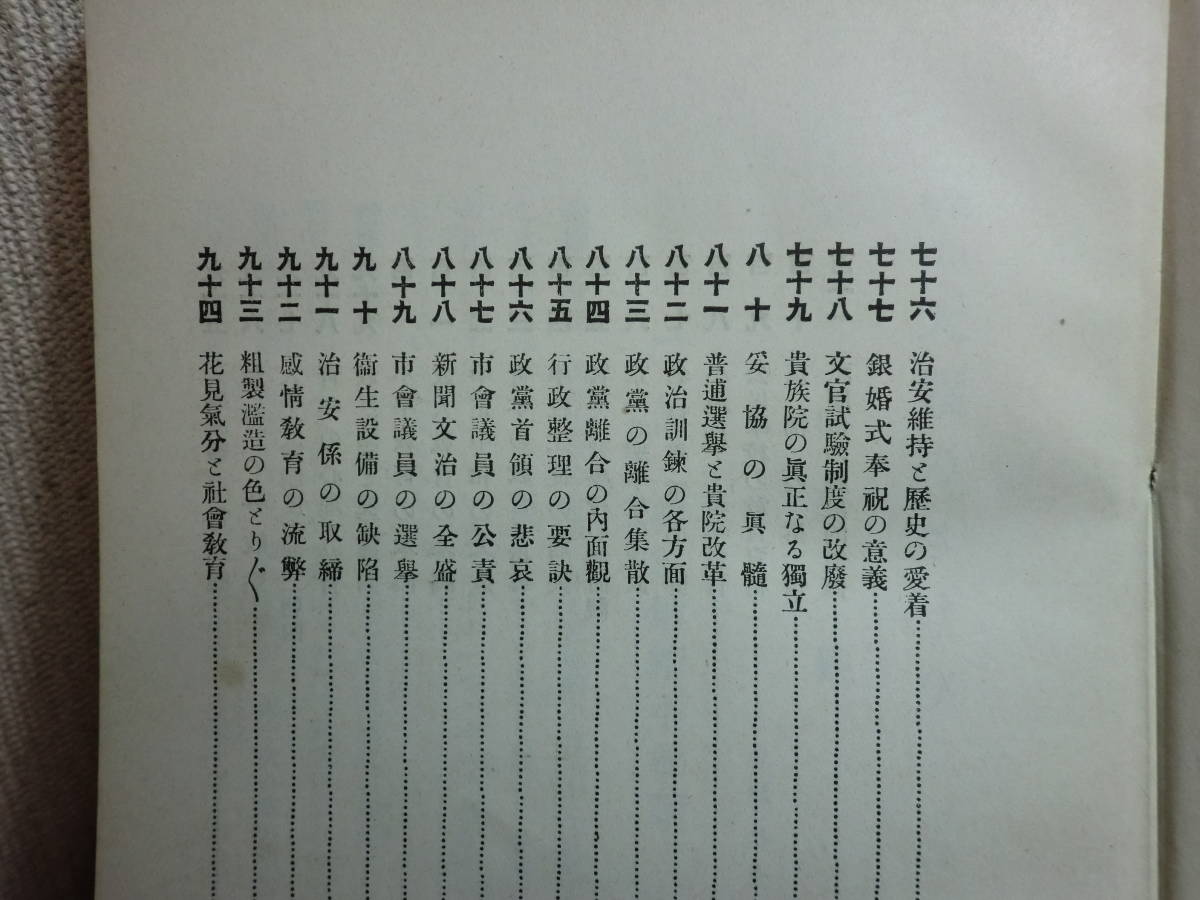 七十六 治安維持と歷史の愛着
七十七 銀婚式奉祝の意義
七十八 文官試驗制度の改廢
七十九 貴族院の眞正なる獨立
八十 妥協の眞髓
八十一 普通選擧と貴院改革
八十二 政治訓鍊の各方面
八十三 政黨の離合集散
八十四 政黨離合の內面觀
八十五 行政整理の要訣
八十六 政黨首領の悲哀
八十七 市會議員の公責
八十八 新聞文治の全盛
八十九 市會議員の選擧
九十 衞生設備の缺陷
九十一 治安係の取締
九十二 感情敎育の流弊
九十三 粗製濫造の色とり〴〵
九十四 花見氣分と社會敎育